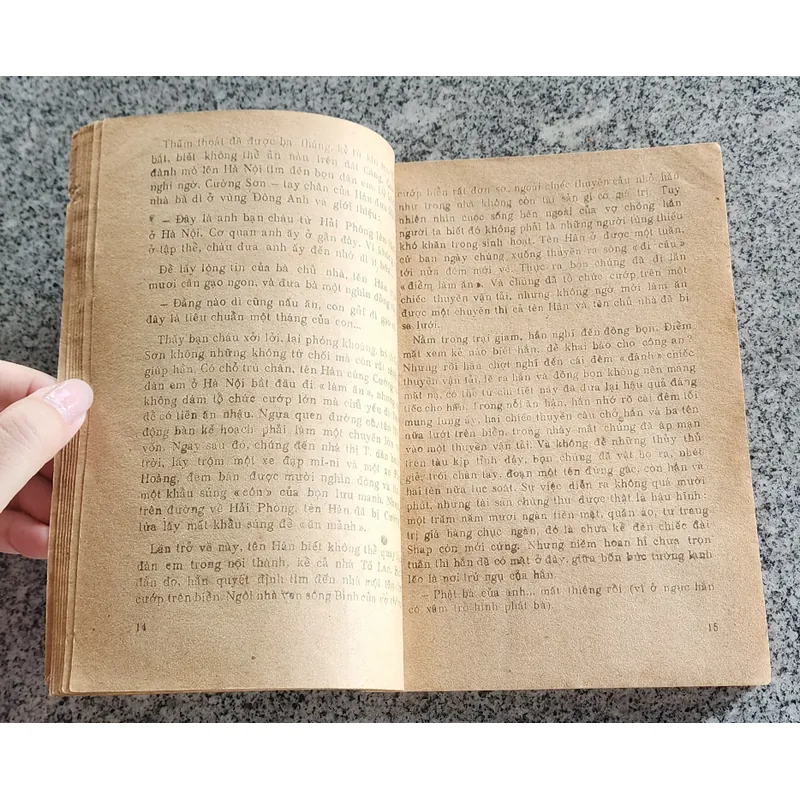 Thấm thoát đã được ba tháng, kể từ khi
bắt, biết không thể ăn nàn trên đất Cảng,
đành mò lên Hà Nội tìm đến bọn đàn em. Từ
nghi ngờ. Cường Sơn — tay chân của Hân đưa
nhà bà dì ở vùng Đông Anh và giới thiệu:
— Đây là anh bạn cháu từ Hải Phòng lên
ở Hà Nội. Cơ quan anh ấy ở gần đây. Vì
ở tập thể, cháu đưa anh ấy đến nhờ dì ít
Để lấy lòng tin của bà chủ nhà, tên Hân
mươi cân gạo ngon, và đưa bà một nghìn đồng
— Đằng nào dì cũng nấu ăn, con gửi dì gạo
đây là tiêu chuẩn một tháng của con...
Thấy bạn cháu xởi lởi, lại phóng khoáng, bà
Sơn không những không từ chối mà còn rất
giúp hắn. Có chỗ trú chân, tên Hân cùng Cường
đàn em ở Hà Nội bắt đầu đi «làm ăn», nhưng
không dám tổ chức cướp lớn mà chủ yếu đi
để có tiền ăn nhậu. Ngựa quen đường cũ, tên
động bàn kế hoạch phải làm một chuyến lớn
vốn. Ngay sau đó, chúng đến nhà thị T. dân
trời, lấy trộm một xe đạp mi-ni và một
Hoằng, đem bán được mười nghìn đồng và
một khẩu súng «côn» của bọn lưu manh. Nhưng
trên đường về Hải Phòng, tên Hân đã bị Cường
lừa lấy mất khẩu súng để «ăn mảnh».
Lần trở về này, tên Hân biết không thể quay
đàn em trong nội thành, kể cả nhà Tô Lan.
đắn đo, hắn quyết định tìm đến nhà một tên
cướp trên biển. Ngôi nhà ven sông Bính của vợ
14
cướp biển rất đơn sơ, ngoài chiếc thuyền câu nhỏ, hầu
như trong nhà không còn tài sản gì có giá trị. Tuy
nhiên nhìn cuộc sống bên ngoài của vợ chồng hắn
người ta biết đó không phải là những người túng thiếu
khó khăn trong sinh hoạt. Tên Hân ở được một tuần,
cứ ban ngày chúng xuống thuyền ra sông «đi câu»
tới nửa đêm mới về. Thực ra bọn chúng đã đi lần
«điểm làm ăn». Và chúng đã tổ chức cướp trên một
chiếc thuyền vận tải, nhưng không ngờ mới làm ăn
được một chuyến thì cả tên Hân và tên chủ nhà đã bị
sa lưới.
Nằm trong trại giam, hắn nghĩ đến đồng bọn. Điểm
mặt xem kẻ nào biết hắn, để khai báo cho công an?
Nhưng rồi hắn chợt nghĩ đến cái đêm «đánh» chiếc
thuyền vận tải, lẽ ra hắn và đồng bọn không nên mang
mặt nạ, có thể từ chi tiết này đã đưa lại hậu quả đáng
tiếc cho hắn. Trong nỗi ân hận, hắn nhớ rõ cái đêm tối
mung lung ấy, hai chiếc thuyền câu chở hắn và ba tên
nữa lướt trên biển, trong nháy mắt chúng đã áp mạn
vào một thuyền vận tải. Và không để những thủy thủ
trên tàu kịp tỉnh dậy, bọn chúng đã vật bổ ra, nhét
giẻ, trói chân tay, đoạn một tên đứng gác, còn hắn và
hai tên nữa lục soát. Sự việc diễn ra không quá mười
phút, nhưng tài sản chúng thu được thật là hậu hĩnh:
một trăm năm mươi ngàn tiền mặt, quần áo, tư trang
trị giá hàng chục ngàn, đó là chưa kể đến chiếc đài
Shap còn mới cứng. Nhưng niềm hoan hỉ chưa trọn
tuần thì hắn đã có mặt ở đây, giữa bốn bức tường lạnh
lẽo là nơi trú ngụ của hắn.
— Phật bà của anh... mất thiêng rồi (vì ở ngực hắn
có xăm trổ hình phật bà).
15